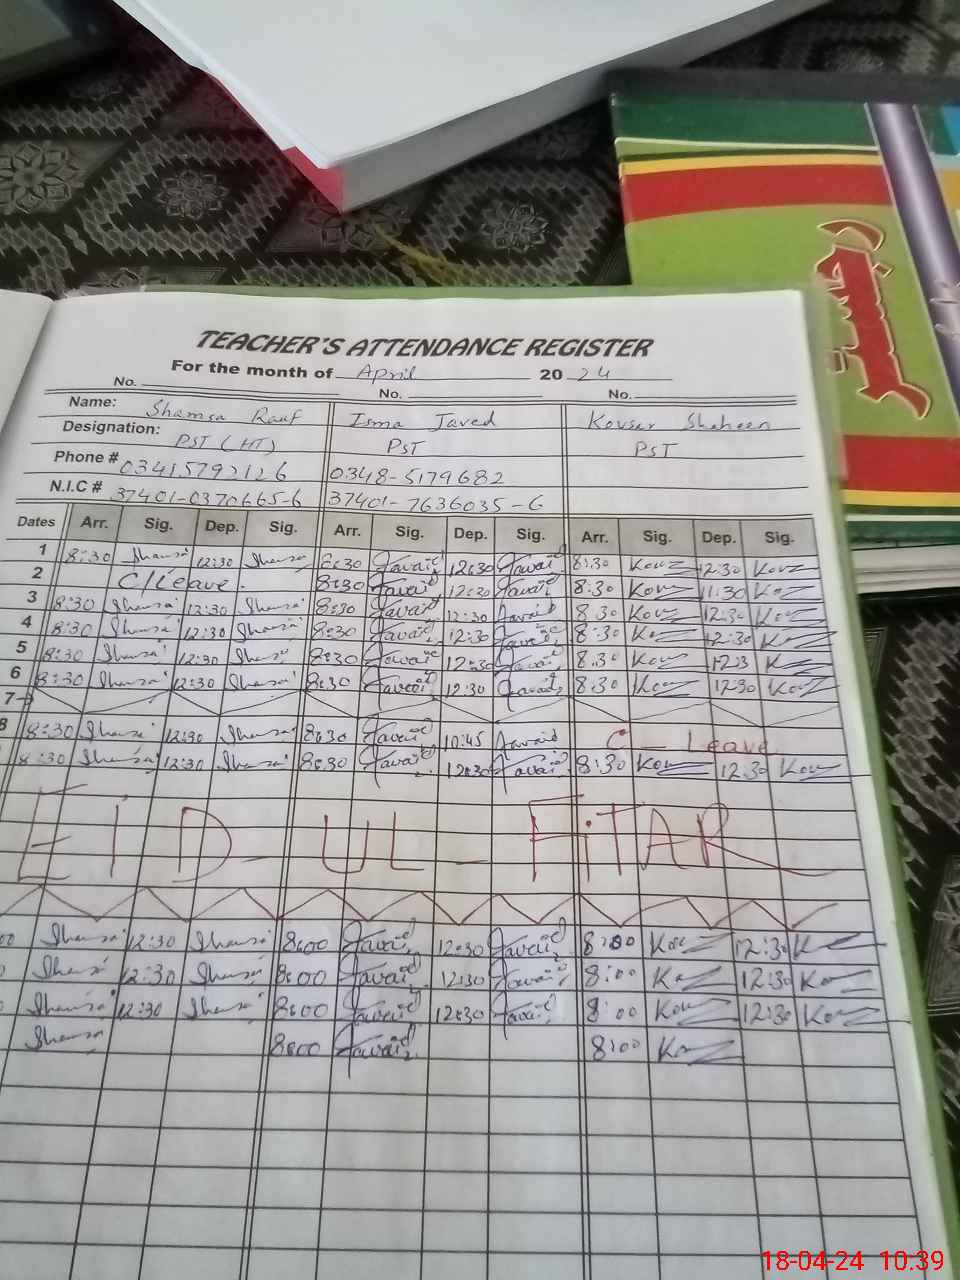 TEACHER'S ATTENDANCE REGISTER
For the month of April 2024
No. No. No.
Name: Shamsa Rauf Isma Javed Kousar Shaheen
Designation: PST (HT) PST PST
Phone # 03415792126 0348-5179682
N.I.C # 37401-0370665-6 37401-7636035-6
Dates Arr. Sig. Dep. Sig. Arr. Sig. Dep. Sig. Arr. Sig. Dep. Sig.
1 8:30 Shamsa 12:30 Shamsa 8:30 Javaid 12:30 Javaid 8:30 Kouz 12:30 Kouz
2 C/Leave. 8:30 Javaid 12:30 Javaid 8:30 Kouz 11:30 Koz
3 8:30 Shamsa 12:30 Shamsa 8:30 Javaid 12:30 Javaid 8:30 Kouz 12:30 Kouz
4 8:30 Shamsa 12:30 Shamsa 8:30 Javaid 12:30 Javaid 8:30 Koz 12:30 Koz
5 8:30 Shamsa 12:30 Shamsa 8:30 Javaid 12:30 Javaid 8:30 Kouz 12:3
6 8:30 Shamsa 12:30 Shamsa 8:30 Javaid 12:30 Javaid 8:30 Kouz 12:30 Kouz
7
8 8:30 Shamsa 12:30 Shamsa 8:30 Javaid 10:45 Javaid C - Leave
8:30 Shamsa 12:30 Shamsa 8:30 Javaid 12:30 Javaid 8:30 Kouz 12:30 Kouz
EID - UL - FITAR
00 Shamsa 12:30 Shamsa 8:00 Javaid 12:30 Javaid 8:00 Kouz 12:30 K
0 Shamsa 12:30 Shamsa 8:00 Javaid 12:30 Javaid 8:00 Koz 12:30 Kouz
0 Shamsa 12:30 Shamsa 8:00 Javaid 12:30 Javaid 8:00 Kouz 12:30 Kouz
Shamsa 8:00 Javaid 8:00 Koz
18-04-24 10.39